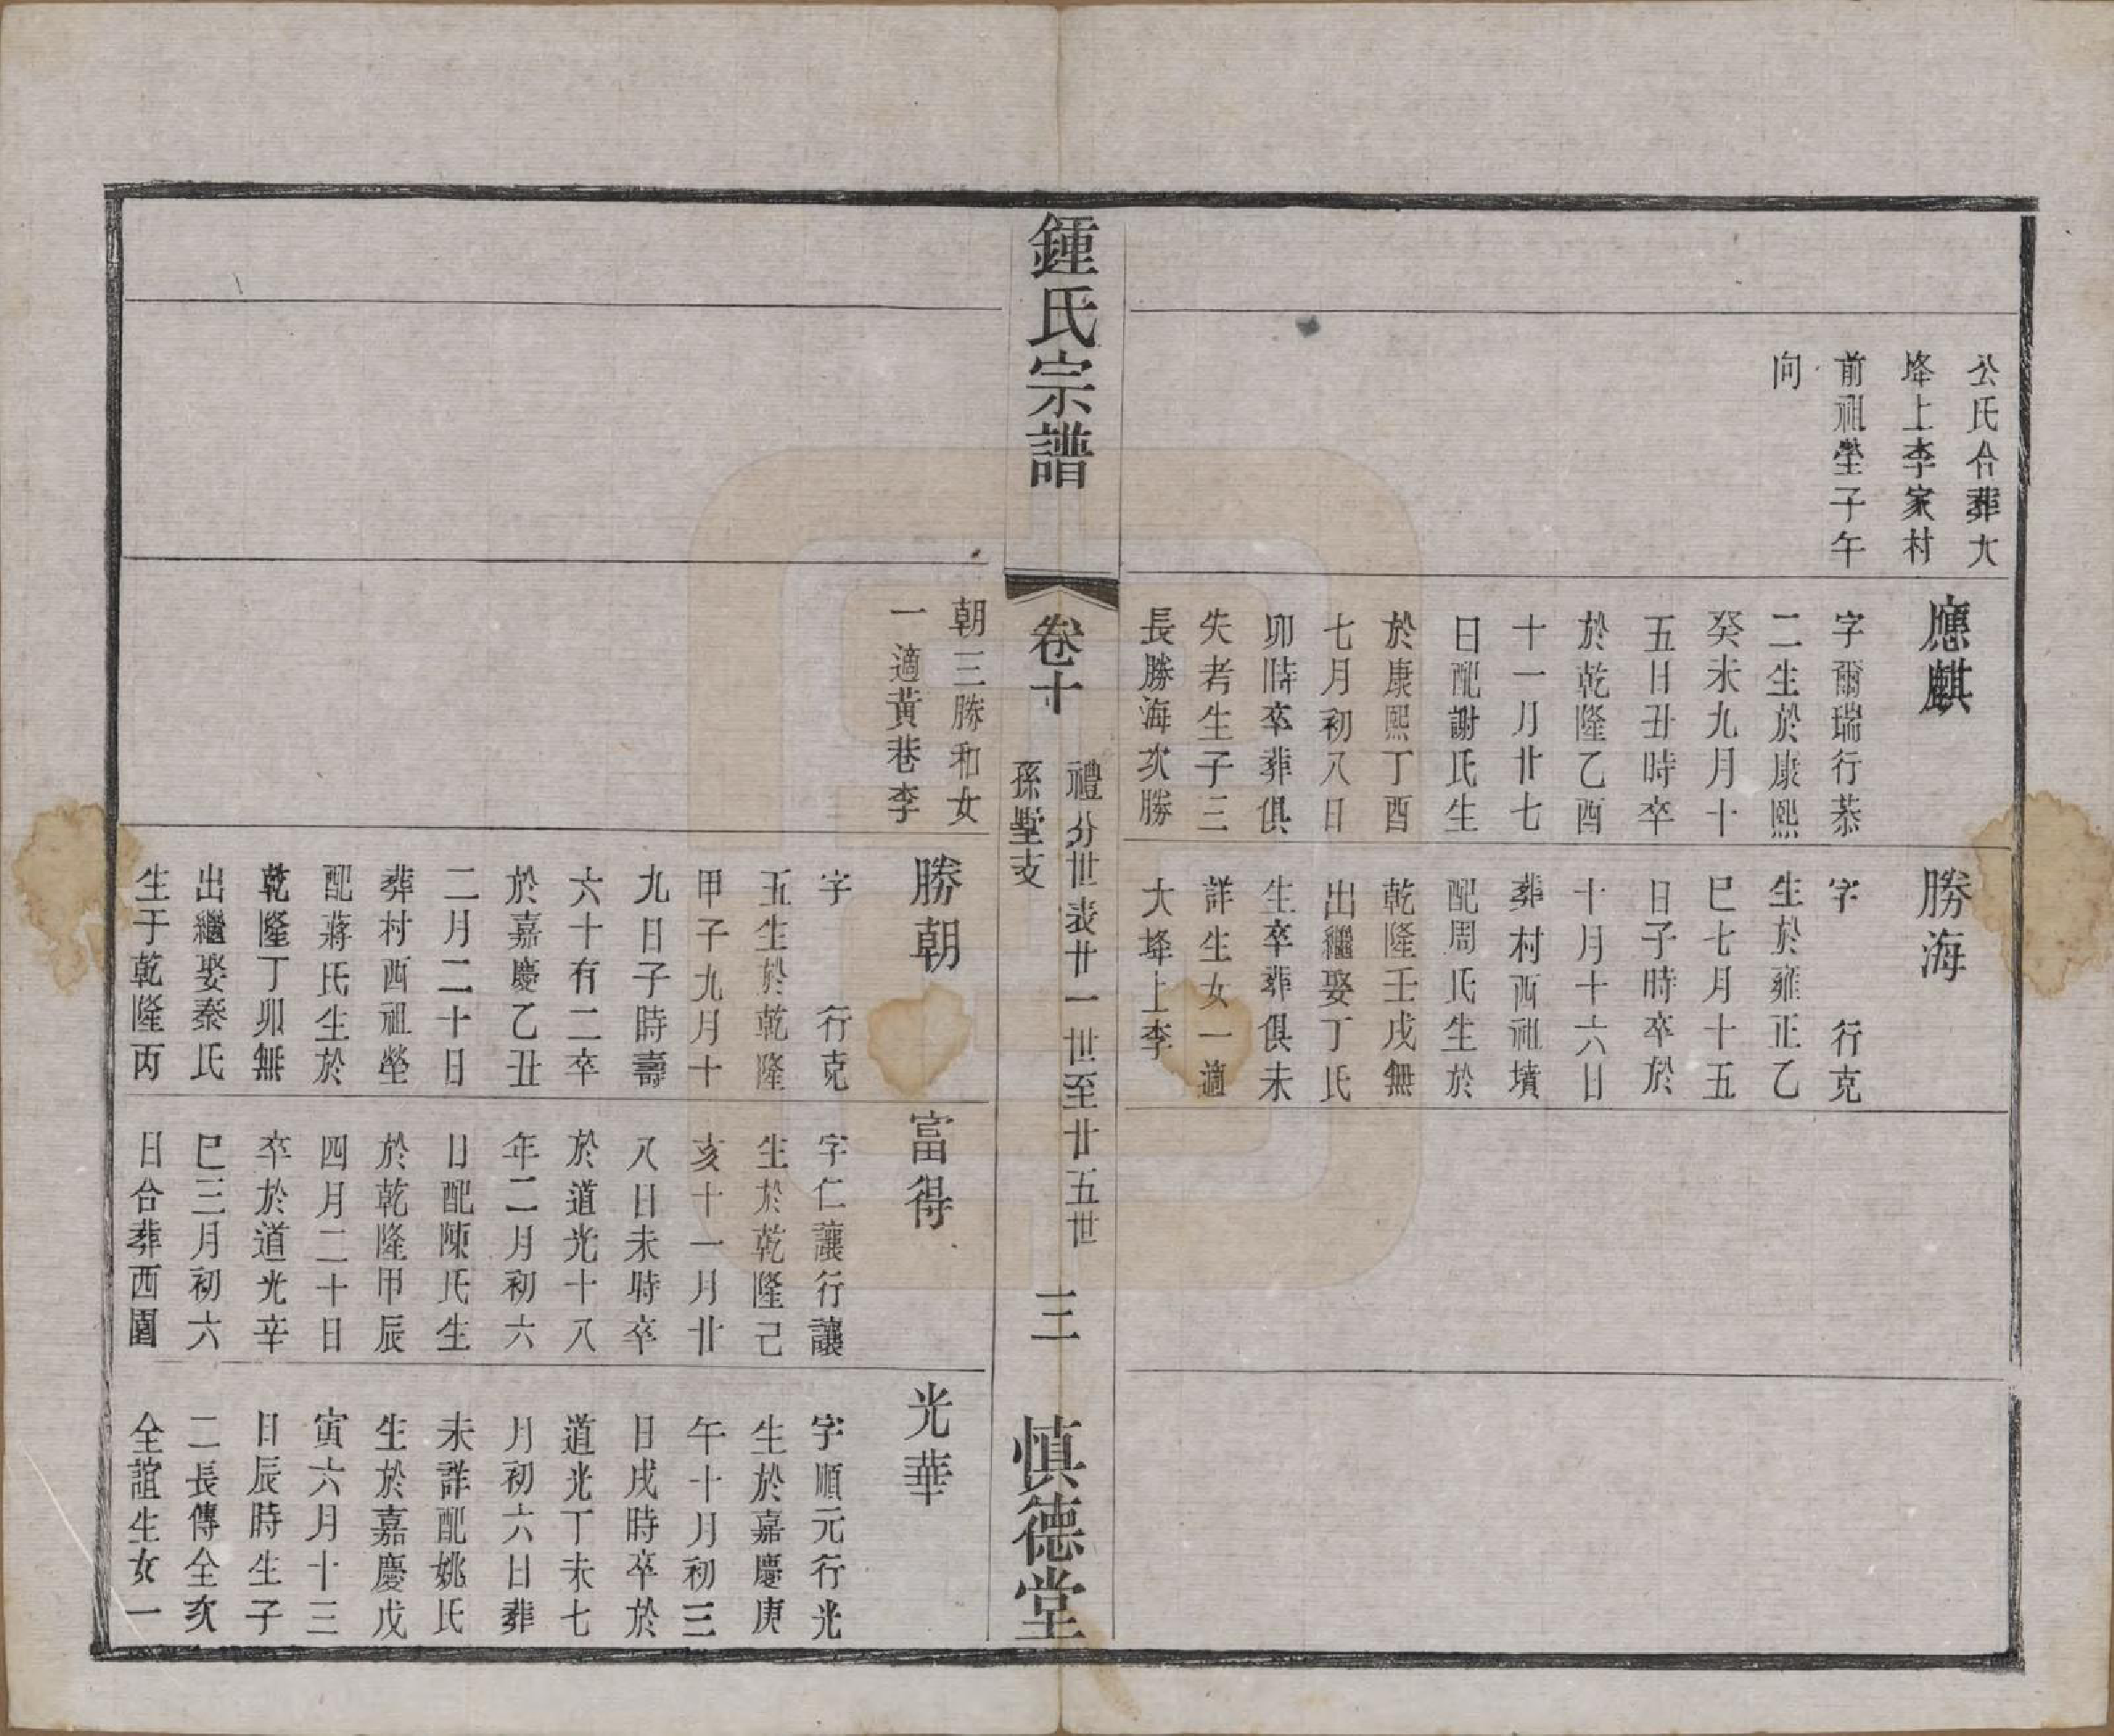 公氏合葬大
垾上李家村
前祖塋子午
向
應麒
字爾瑞行恭
二生於康熙
癸未九月十
五日丑時卒
於乾隆乙酉
十一月廿七
日配謝氏生
於康熙丁酉
七月初八日
卯時卒葬俱
失考生子三
長勝海次勝
勝海
字 行克
生於雍正乙
巳七月十五
日子時卒於
十月十六日
葬村西祖墳
配周氏生於
乾隆壬戌無
出繼娶丁氏
生卒葬俱未
詳生女一適
大垾上李
鍾氏宗譜
卷十
禮分世表廿一世至廿五世
孫墅支
三
慎德堂
朝三勝和女
一適黃巷李
勝朝
字 行克
五生於乾隆
甲子九月十
九日子時壽
六十有二卒
於嘉慶乙丑
二月二十日
葬村西祖塋
配蔣氏生於
乾隆丁卯無
出繼娶秦氏
生于乾隆丙
富得
字仁讓行讓
生於乾隆己
亥十一月廿
八日未時卒
於道光十八
年二月初六
日配陳氏生
於乾隆甲辰
四月二十日
卒於道光辛
巳三月初六
日合葬西園
光華
字順元行光
生於嘉慶庚
午十月初三
日戌時卒於
道光丁未七
月初六日葬
未詳配姚氏
生於嘉慶戊
寅六月十三
日辰時生子
二長傳全次
全誼生女一